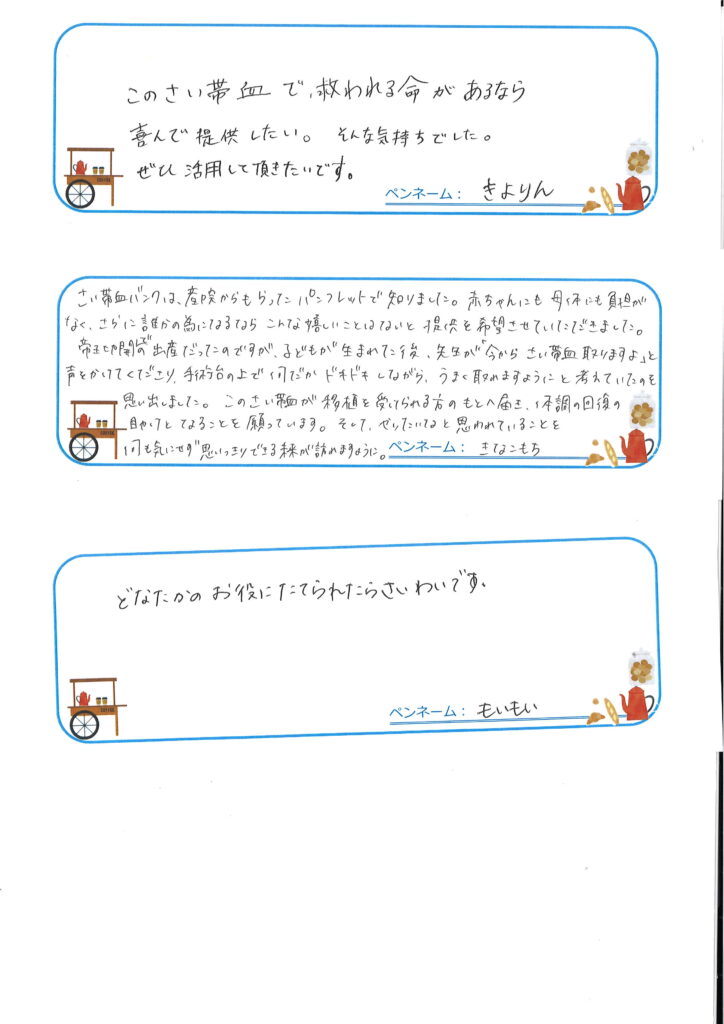 このさい帯血で、救われる命があるなら
喜んで提供したい。そんな気持ちでした。
ぜひ活用して頂きたいです。
ペンネーム： きよりん
さい帯血バンクは、産院からもらったパンフレットで知りました。赤ちゃんにも母体にも負担が
なく、さらに誰かの為になるならこんな嬉しいことはないと提供を希望させていただきました。
帝王切開での出産だったのですが、子どもが生まれた後、先生が「今からさい帯血取りますよ」と
声をかけてくださり、手術台の上で何だかドキドキしながら、うまく取れますようにと考えていたのを
思い出しました。このさい帯血が移植を受けられる方のもとへ届き、体調の回復の
助けとなることを願っています。そして、やりたいなと思われていることを
何も気にせず思いっきりできる未来が訪れますように。
ペンネーム： きなこもち
どなたかのお役にたてられたらさいわいです。
ペンネーム： もいもい